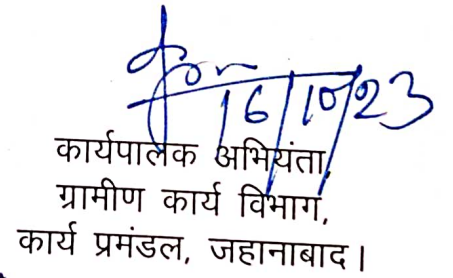 16/10/23
कार्यपालक अभियंता,
ग्रामीण कार्य विभाग,
कार्य प्रमंडल, जहानाबाद।